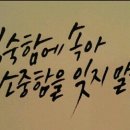 숙함에 속아
소중함을 잊지 말